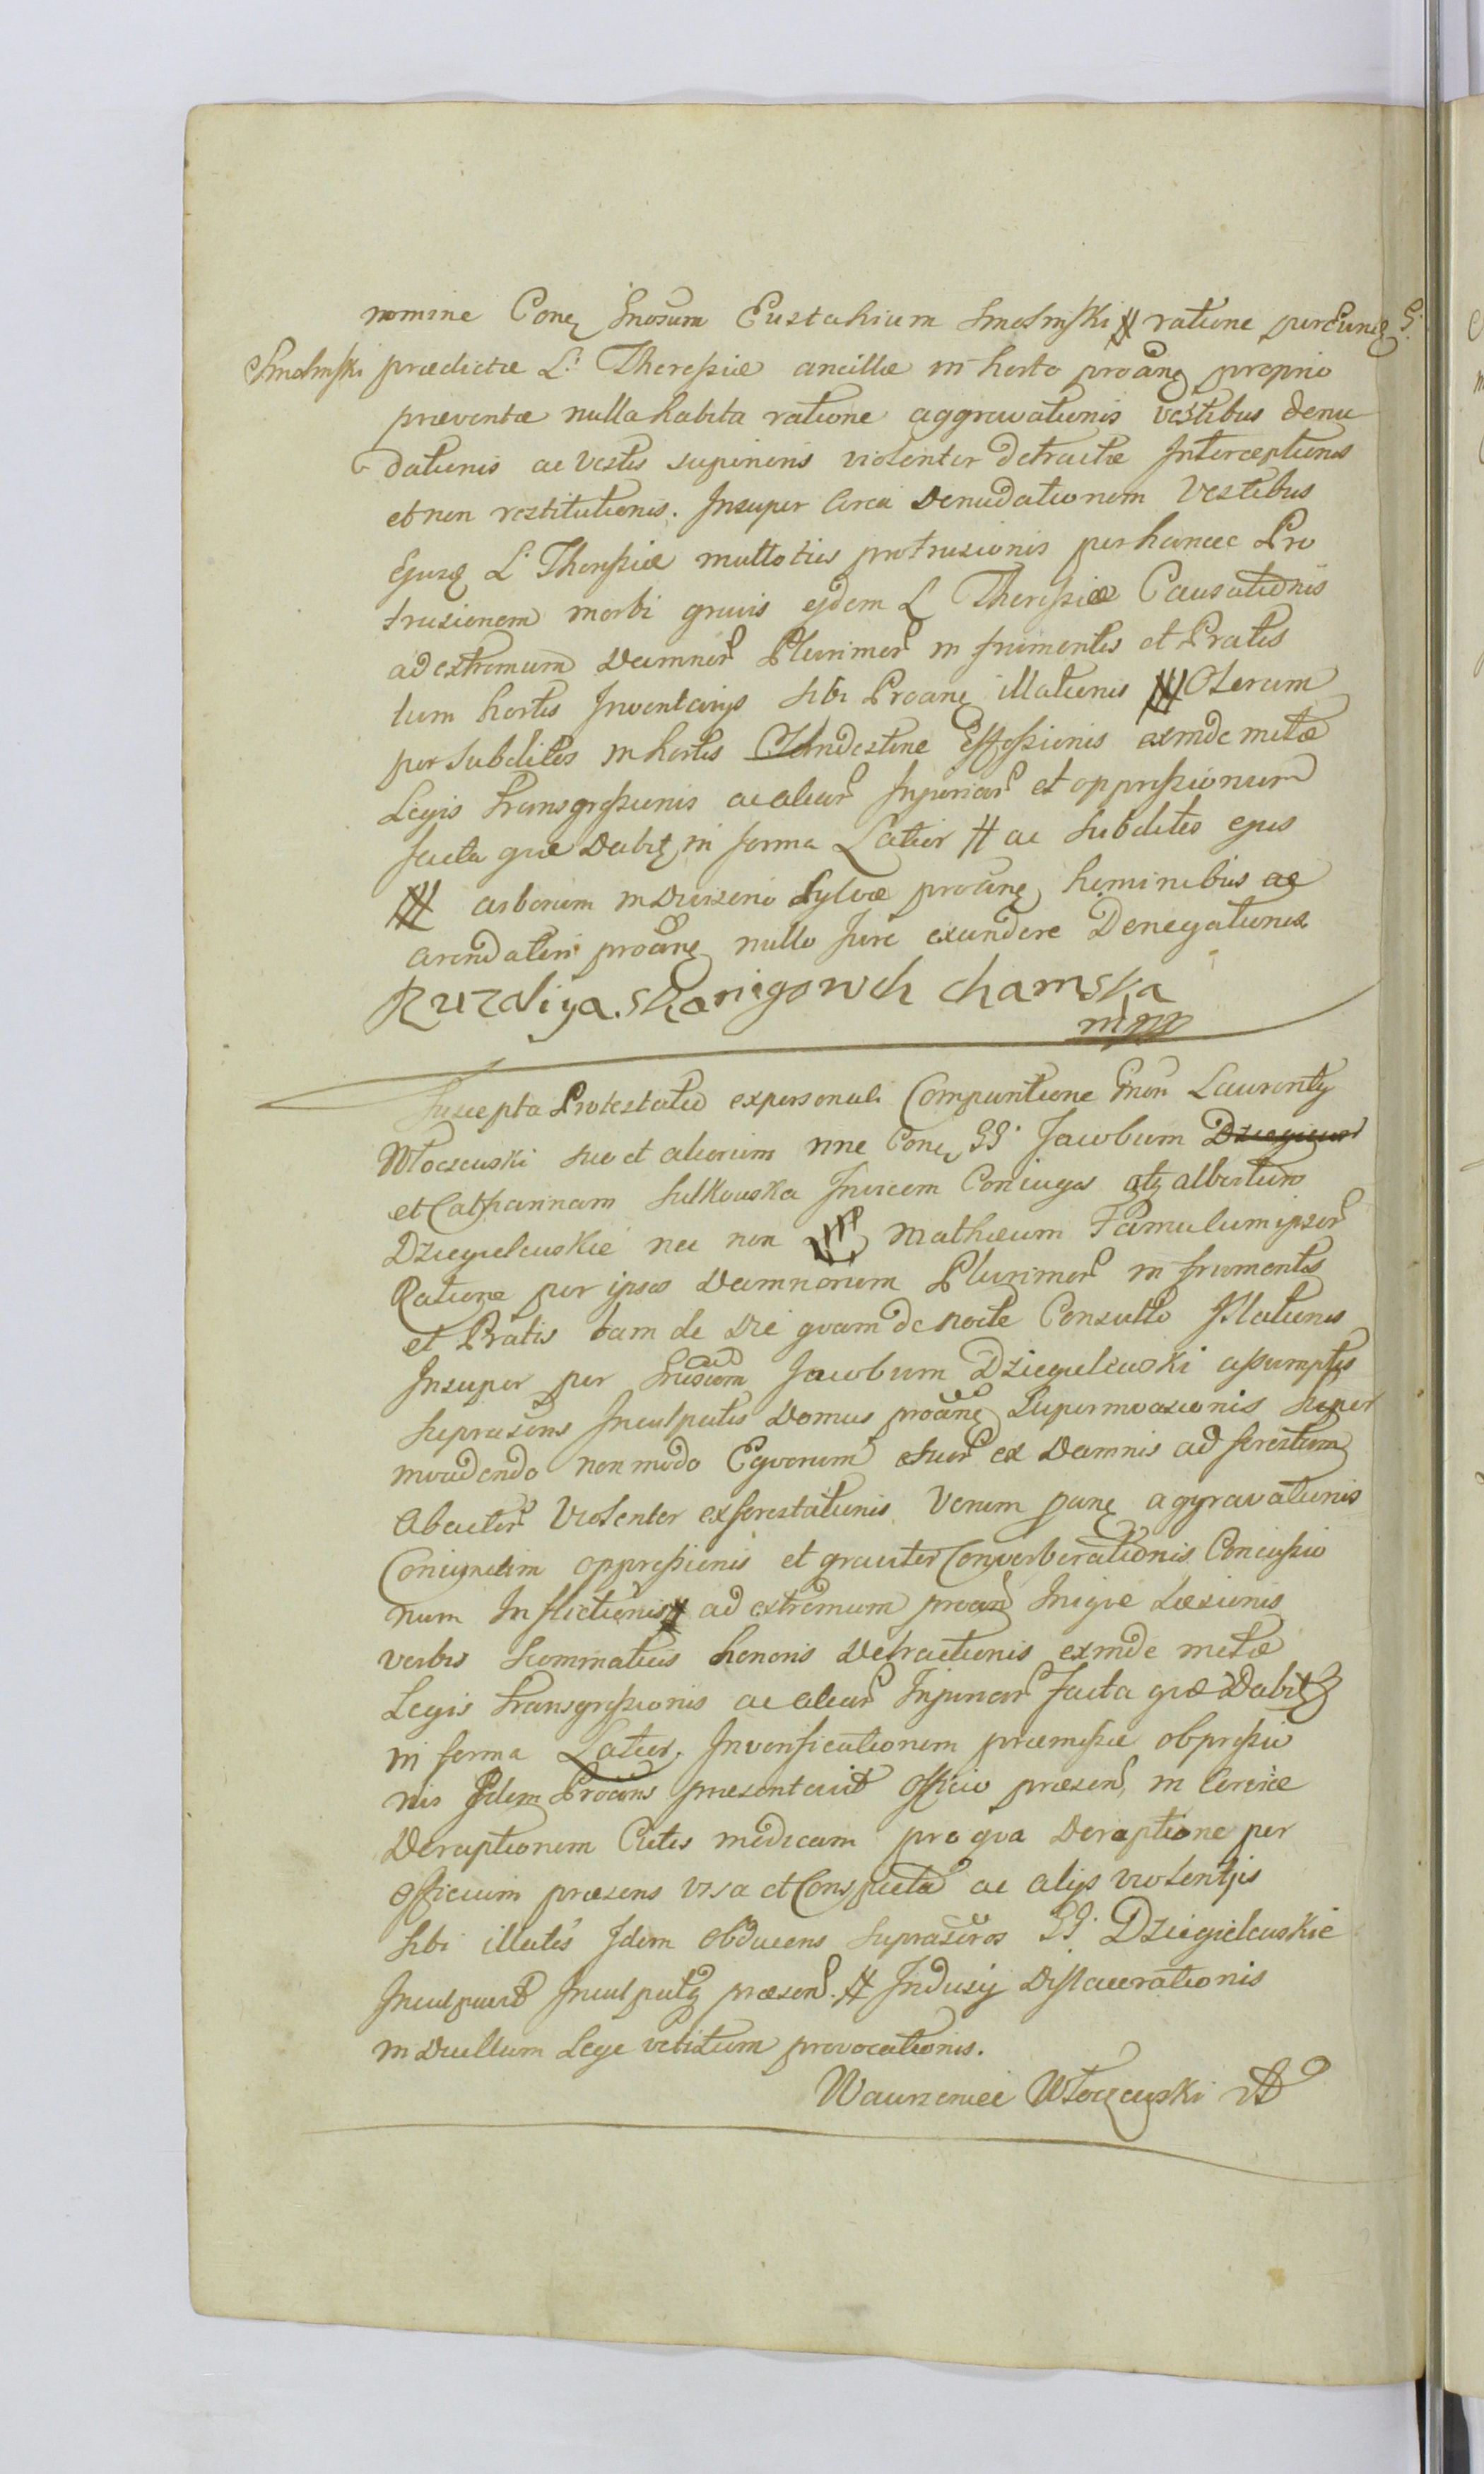 nomine Conq Gnosum Eustahium Smolinski # ratione per Eunq G.
Smolinski prædictæ L. Theressiæ ancillæ in horto proanq proprio
præventæ nulla habita ratione aggravationis vestibus denu
dationis ac vestis superioris violenter detractæ Interceptionis
et non restitutionis. Insuper Circa Denudationem Vestibus
Ejusq L. Theressiæ multoties protrusionis per hancec Pro
trusionem morbi gravis ejdem L Theressiæ Causationis
ad extremum Damnor Plurimor in frumentis et Pratis
tum hortis Inventarijs sibi Proanq illationis Olerum
per subditos in hortis Clandestine Effossionis exinde metæ
Legis transgressionis ac aliar Injuriar et oppressionum
facta quæ Dabit in forma Latior # ac subditos ejus
arborum in Diviseriis Sylvæ proanq hominibus ac
arendatori proanq nullo Jure exundere Denegationis
Ruzaliya. Skarzigowch chamska
mpp
Suscepta Protestatio ex personali Comparitione Gnon Laurenty
Wloczewski suo et aliorum nne Conq GG. Jacobum
et Catharinam Sulkowska Invicem Coniuges atq albertum
Dziegielewskie nec non Mathæum Famulum ipsor
Ratione per ipsos Damnorum Plurimor in frumentis
et Pratis tam de Die quam de nocte Consulto Illationis
Insuper per Jacobum Dziegielewski assumptis
suprascris Inculpatis Domus proanq Supermvasionis super
invadendo non modo Equorum suor ex Damnis ad forestum
Abactor Violenter exforestationis Verum panq aggravationis
Coniunctim oppressionis et graviter Converberationis Concussio
num Inflictionis # ad extremum proan Inique Læsionis
verbis Scommaticis honoris Detractionis exinde metæ
Legis transgressionis ac aliar Injuriar facta quæ Dabitq
in forma Latior. Inverificationem præmissæ obpressio
nis Idem Proans præsentavit Officio præsen, in Cervice
Deraptionem Cutis modicam pro qua Deraptione per
Officium præsens visa et Conspecta ac alijs violentijs
sibi illatis Idem Obducens suprascros GG. Dziegielewskie
Inculpavit Inculpatq præsen. # Indusij Dislacerationis
in Duellum Lege vetitum provocationis.
Wawrzeniec Włoczewski